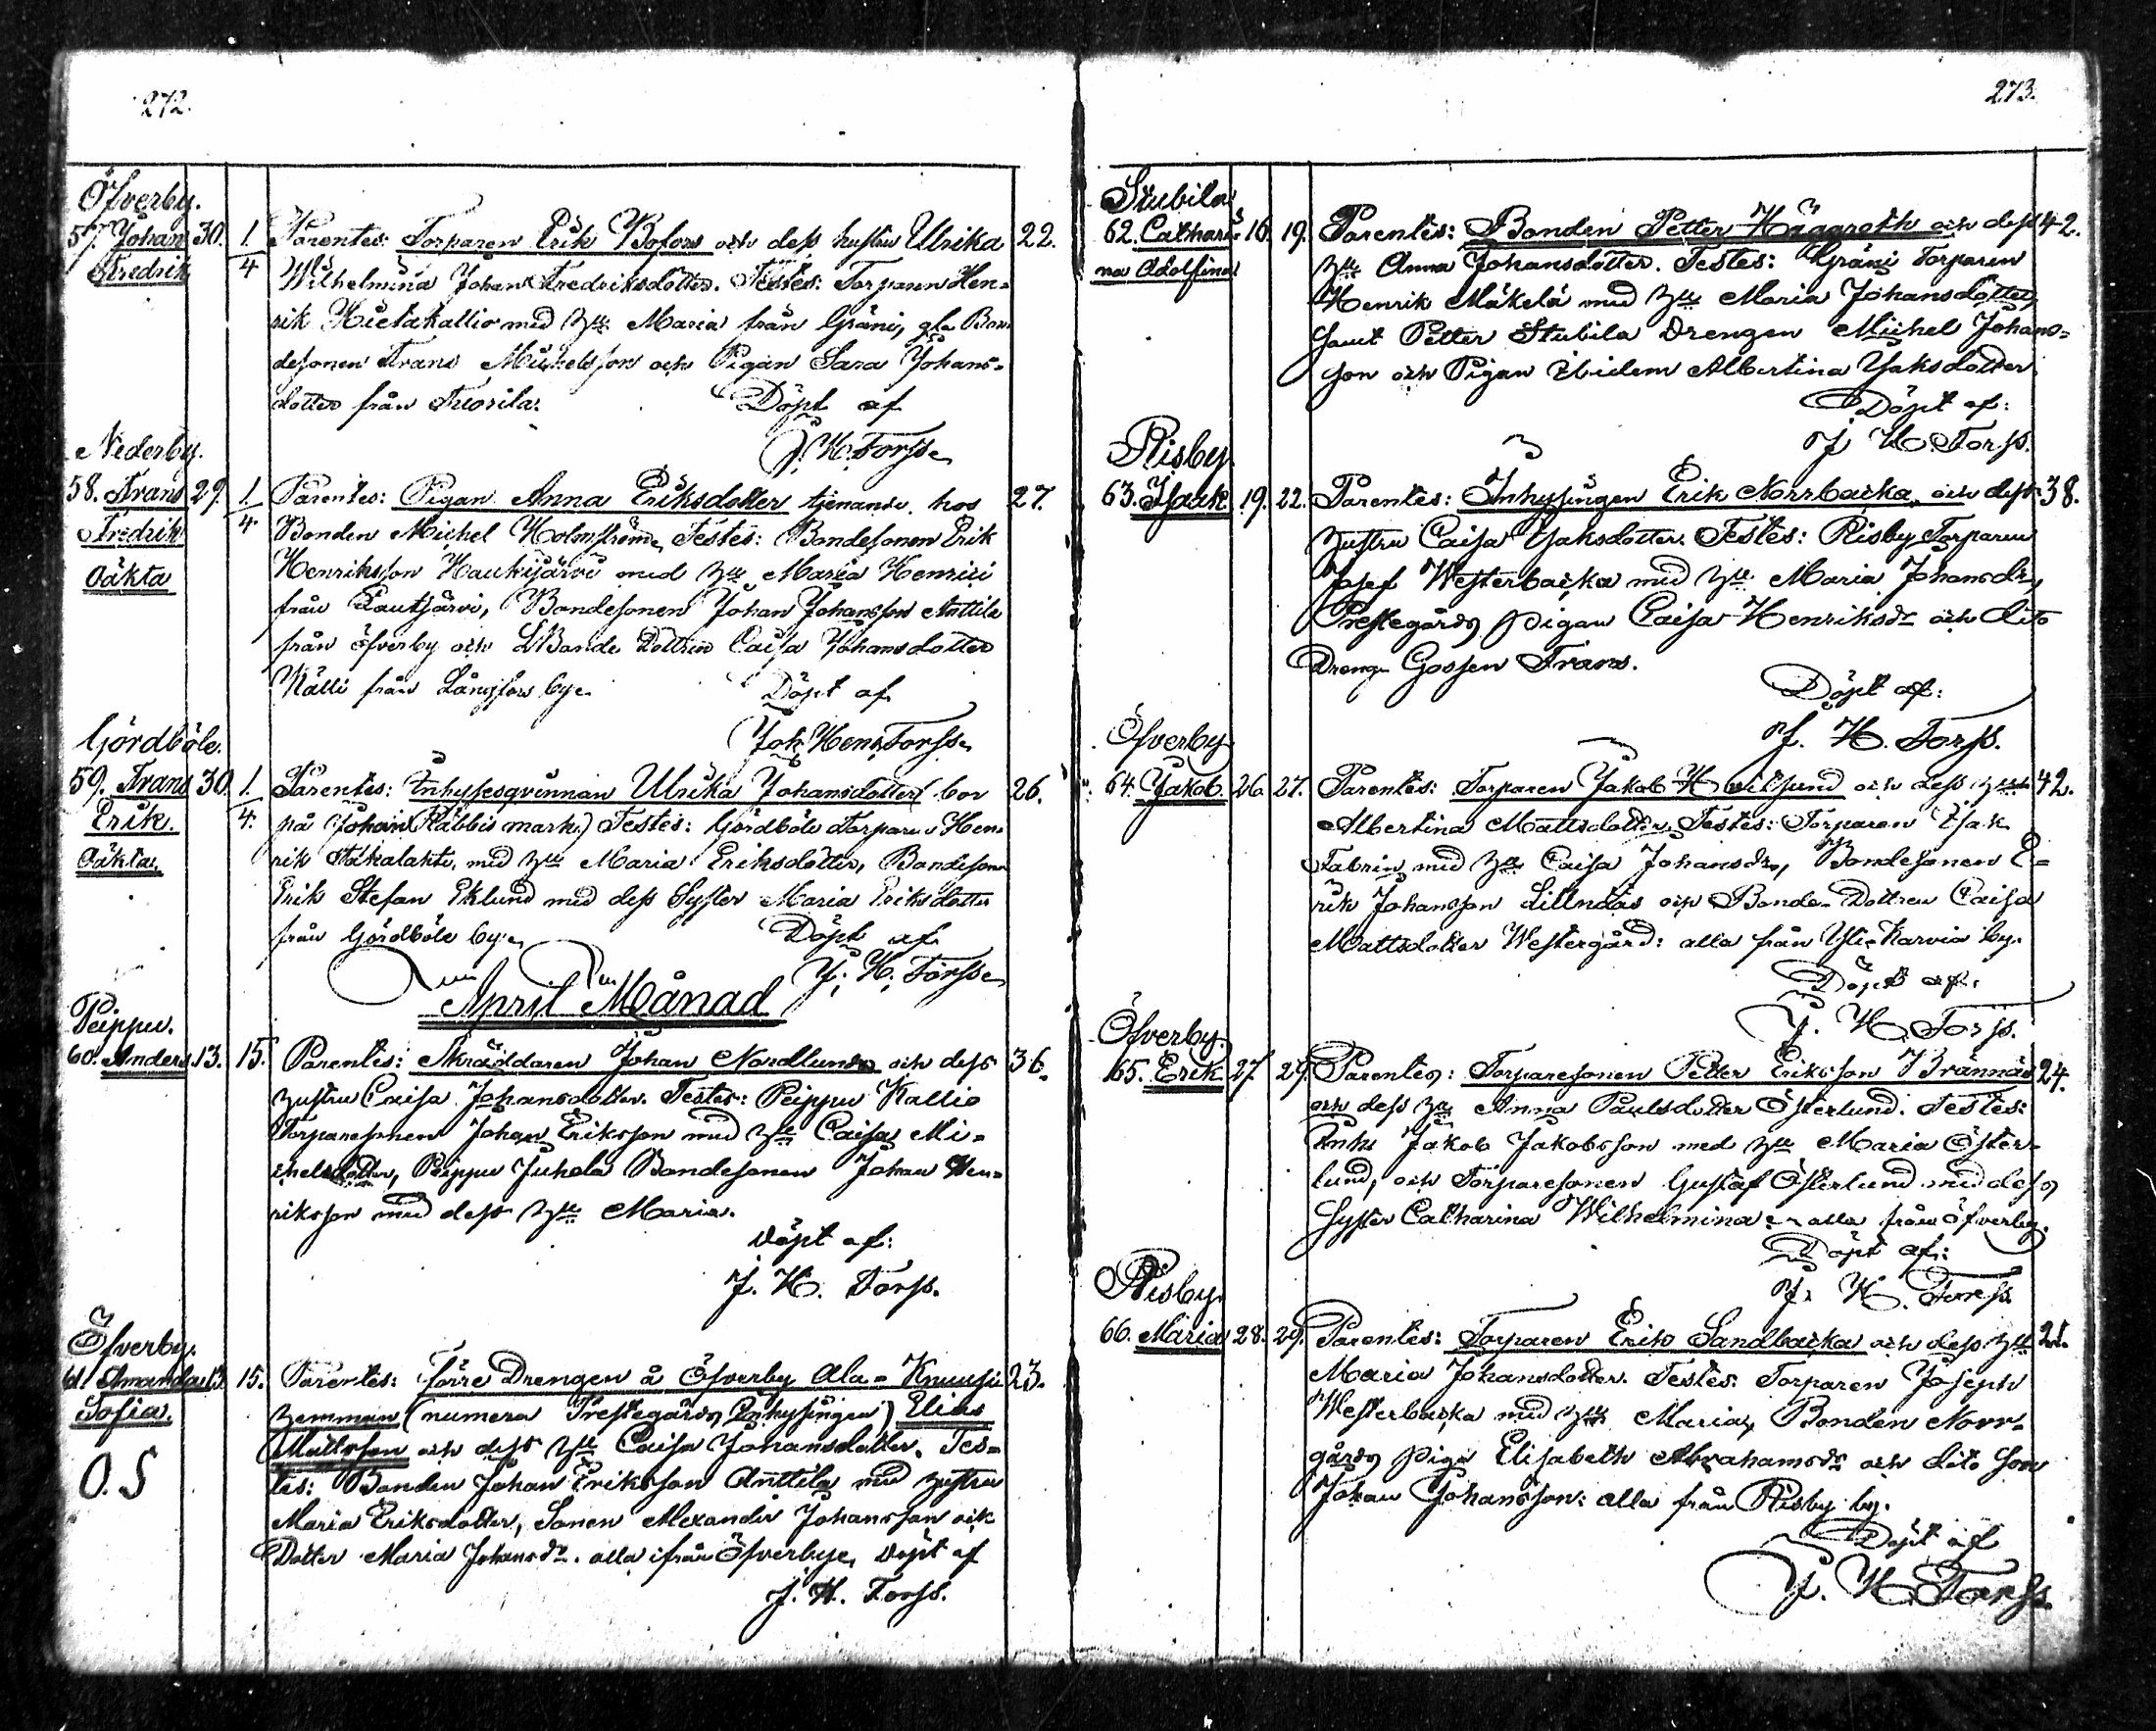 272.
Öfverby.
57. Johan 30. 1. Parentes: Torparen Erik Bofors och dess hustru Ulrika 22.
Fredrik 4 Wilhelmina Johan Fredriksdotter. Testes: Torparen Hen-
rik Hietakallio med H:u Maria från Gräni, gla Bon-
desonen Frans Michelsson och Pigan Sara Johans-
dotter från Tuorila. Döpt af
J. H. Torss.
Nederby.
58. Frans 29. 1. Parentes: Pigan Anna Eriksdotter tjenande hos 27.
Fredrik 4 Bonden Michel Holmström. Testes: Bondesonen Erik
Oäkta Henriksson Haukijärvi med H:u Maria Henrici
från Lautjärvi, Bondesonen Johan Johansson Anttila
från öfverby och Bonde Dottren Caisa Johansdotter
Källi från Långfors by. Döpt af
Joh. Henr. Torss.
Gördböle.
59. Frans 30. 1. Parentes: Inhysesqvinnan Ulrika Johansdotter (bor 26.
Erik. 4. på Johan Räbbis mark.) Testes: Gördböle Torparen Hen-
Oäkta. rik med H:u Maria Eriksdotter, Bondesonen
Erik Stefan Eklund med dess Syster Maria Eriksdotter
från Gördböle by. Döpt af
J. H. Torss.
April Månad
Peippu.
60. Anders 13. 15. Parentes: Skräddaren Johan Nordlund och dess 36.
hustru Caisa Johansdotter. Testes: Peippu Kallio
Torparesonen Johan Eriksson med H:u Caisa Mi-
chelsdotter, Peippu Juhola Bondesonen Johan Hen-
riksson med dess H:u Maria.
Döpt af:
J. H. Torss.
Öfverby.
61. Amanda 13. 15. Parentes: förre Drengen å Öfverby Ala-Knuusi 23.
Sofia. hemman (numera Prestegårds Inhysingen) Elias
Mattsson och dess H:u Caisa Johansdotter. Tes-
O.S tes: Bonden Johan Eriksson Anttila med hustru
Maria Eriksdotter, Sonen Alexander Johansson och
Dotter Maria Johansdr. alla ifrån Öfverby. Döpt af
J. H. Torss.
273.
Stubila
62. Cathari- 16. 19. Parentes: Bonden Petter Häggreth och dess 42.
na Adolfina H:u Anna Johansdotter. Testes: Gräni Torparen
Henrik Mäkelä med H:u Maria Johansdotter,
samt Petter Stubila Drengen Michel Johans-
son och Pigan ibidem Albertina Isaksdotter.
Döpt af:
J. H. Torss.
Risby.
63. Isak 19. 22. Parentes: Inhysingen Erik Norrbacka och dess 38.
hustru Caisa Isaksdotter. Testes: Risby Torparen
Josef Westerbacka med H:u Maria Johansdr,
Prestegårds pigan Caisa Henriksdr och dito
Dreng Gossen Frans.
Döpt af:
J. H. Torss.
Öfverby
64. Jakob. 26. 27. Parentes: Torparen Jakob och dess H:u 42.
Albertina Mattsdotter. Testes: Torparen Isak
Fabrin med H:u Caisa Johansdr, Bondesonen E-
rik Johansson Lillnäs och Bonde-Dottren Caisa
Mattsdotter Westergård: alla från Yli-Karvia by.
Döpt af:
J. H. Torss.
Öfverby.
65. Erik 27. 29. Parentes: Torparesonen Petter Eriksson Brännäs 24.
och dess H:u Anna Paulsdotter Österlund. Testes:
Inhs Jakob Jakobsson med H:u Maria Öster-
lund, och Torparesonen Gustaf Österlund med dess
Syster Catharina Wilhelmina alla från öfverby.
Döpt af:
J. H. Torss.
Risby.
66. Maria 28. 29. Parentes: Torparen Erik Sandbacka och dess H:u 21.
Maria Johansdotter. Testes: Torparen Joseph
Westerbacka med H:u Maria, Bonden Norr-
gårds Piga Elisabeth Abrahamsdr och dito Son
Johan Johansson: alla från Risby by.
Döpt af
J. H. Torss.